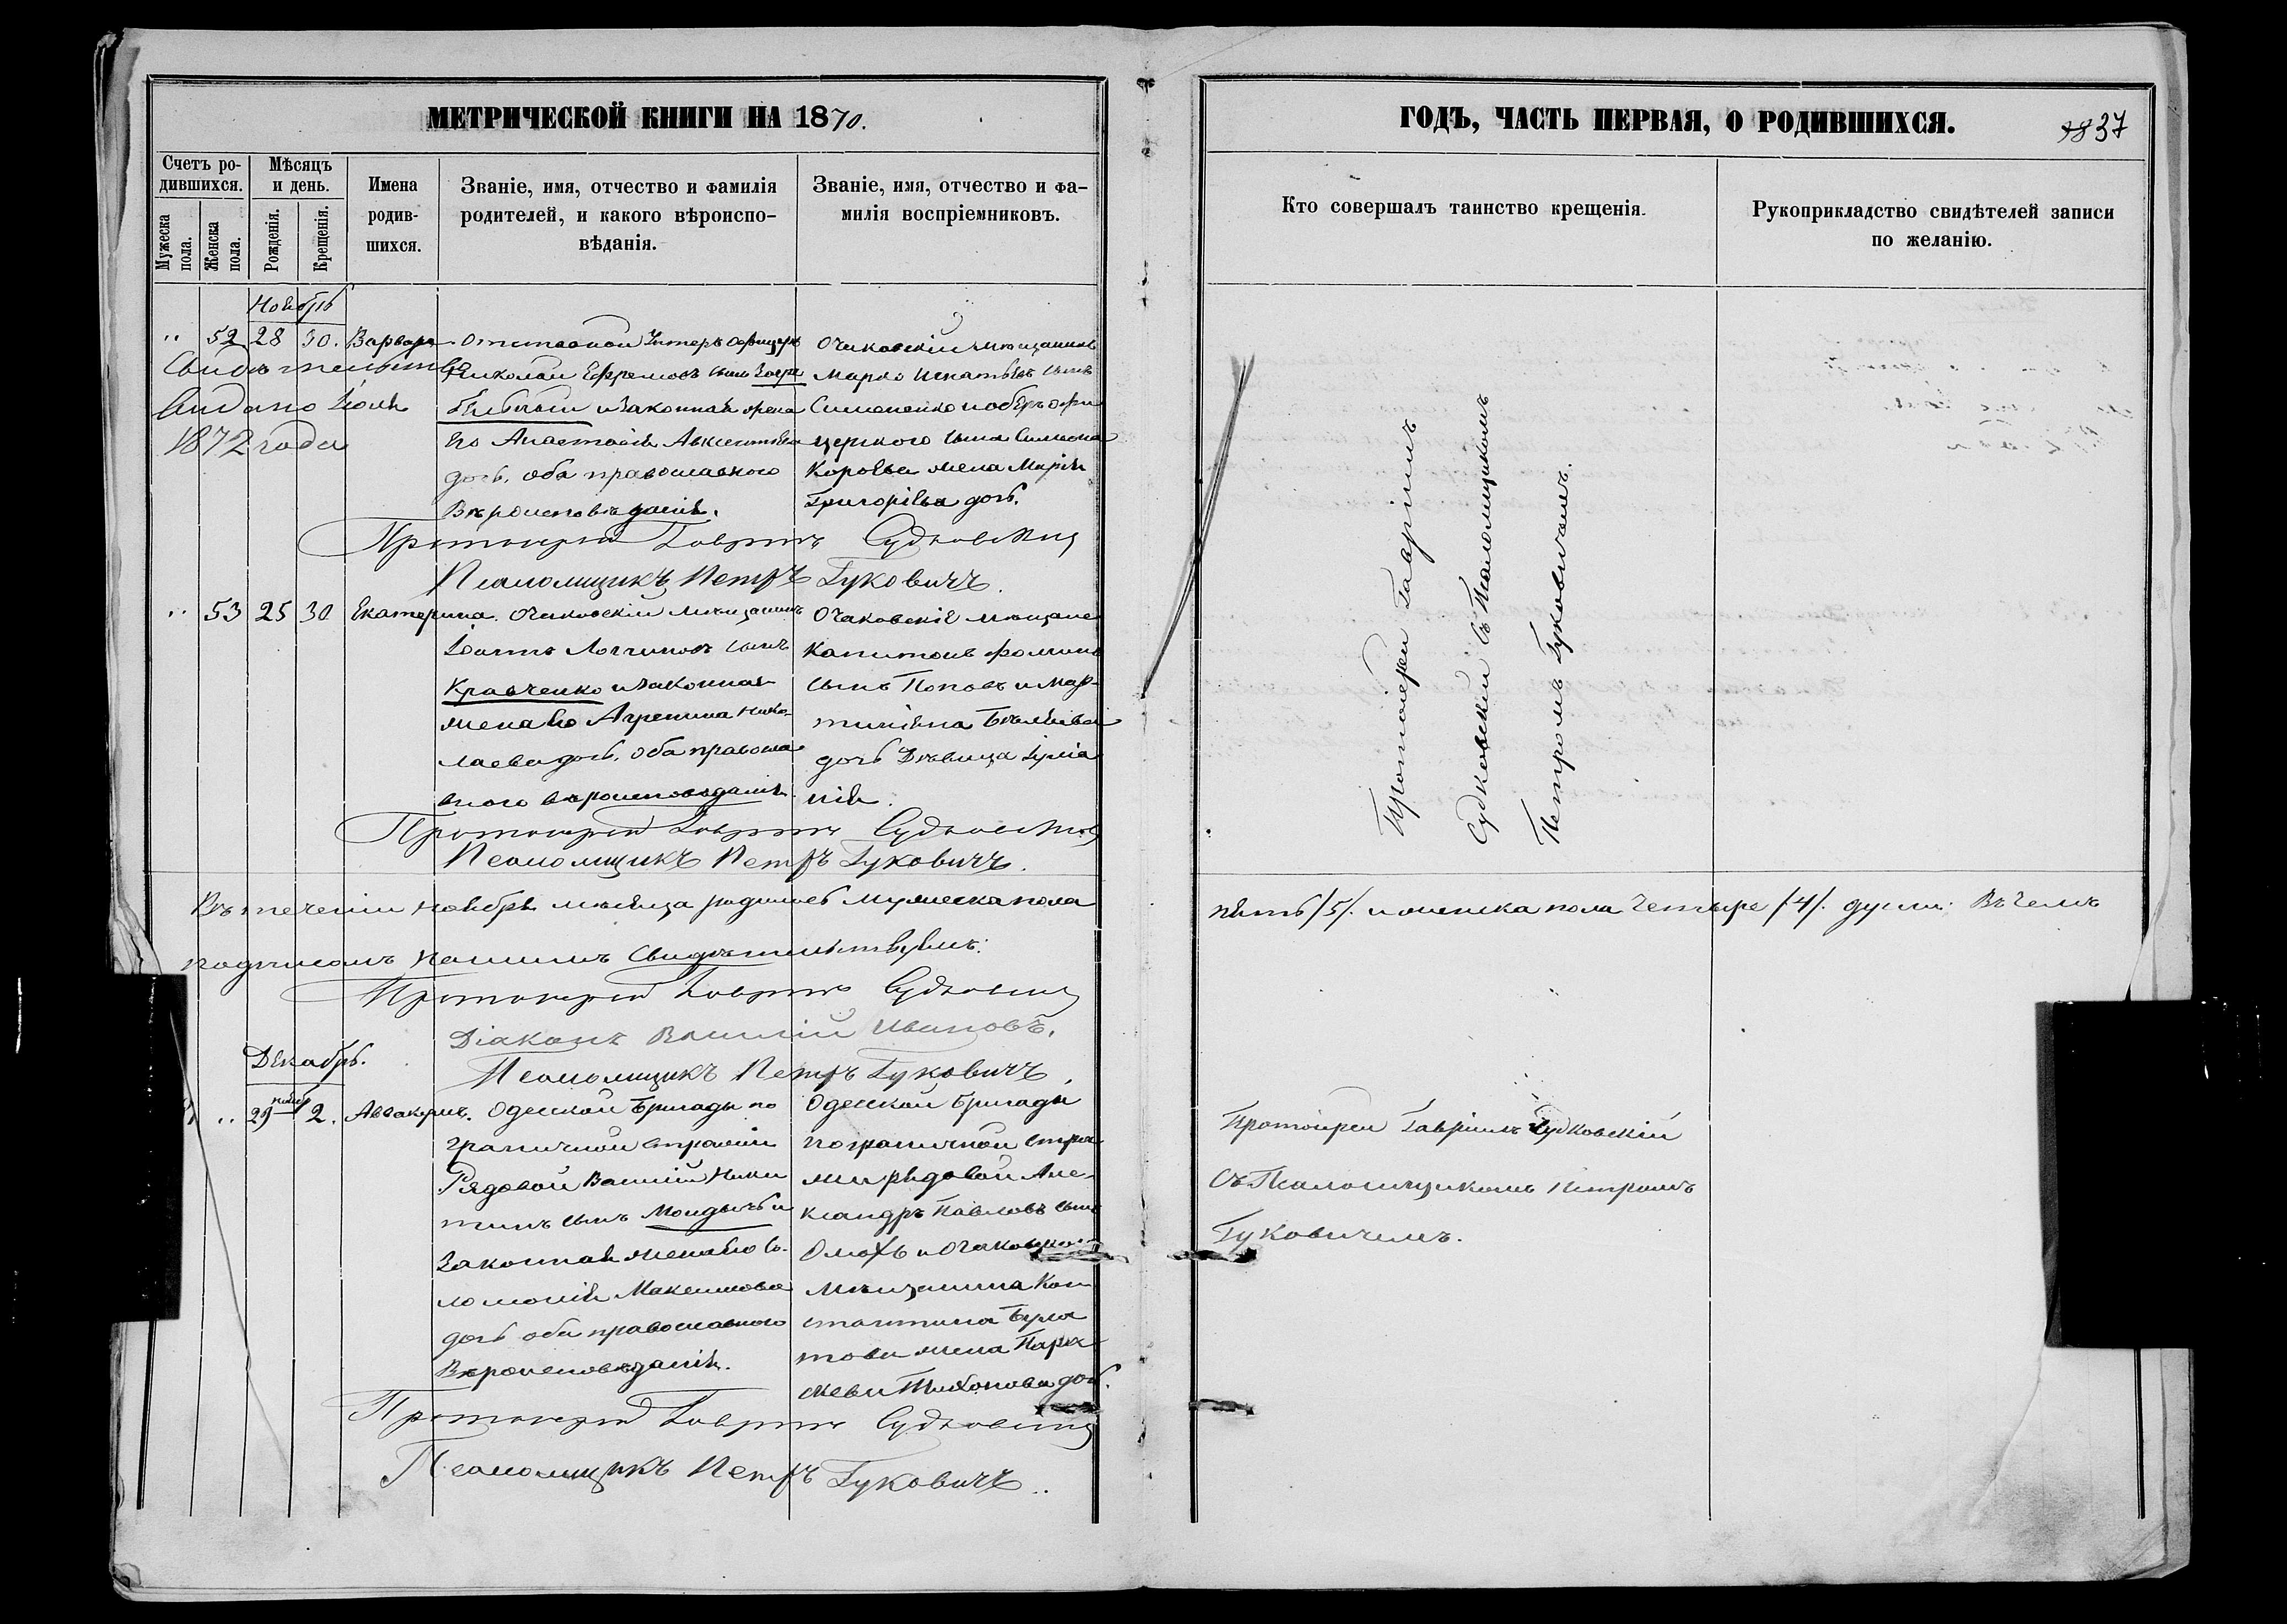 МЕТРИЧЕСКОЙ КНИГИ НА 1870.
ГОДЪ, ЧАСТЬ ПЕРВАЯ, О РОДИВШИХСЯ.
37
Счетъ ро-
дившихся.
Мужеска
пола.
Женска
пола.
Мѣсяцъ
и день.
Рожденія.
Крещенія.
Имена
родив-
шихся.
Званіе, имя, отчество и фамилія
родителей, и какого вѣроиспо-
вѣданія.
Званіе, имя, отчество и фа-
милія воспріемниковъ.
Кто совершалъ таинство крещенія.
Рукоприкладство свидѣтелей записи
по желанію.
Ноябрь
" 52 28 30. Варвара
Свидѣтельство
выдано Іюля
1872 года
Отставной Унтеръ офицеръ
Николай Ефремовъ сынъ
и законная жена
его Анастасія Авксентьева
дочь, оба православнаго
Вѣроисповѣданія.
Очаковскій мѣщанинъ
Марко Игнатьевъ сынъ
Симоненко и оберъ офи
церскаго сына Симеона
жена Марія
Григорьева дочь.
Протоіерей Гавріилъ Судковскій
Псаломщикъ Петръ Гуковичъ.
Протоіерей Гавріилъ
Судковскій съ Псаломщикомъ
Петромъ Гуковичемъ.
" 53 25 30 Екатерина.
Очаковскій мѣщанинъ
Іоаннъ Логгиновъ сынъ
Кравченко и законная
жена его Агрепина Нико-
лаева дочь, оба правосла
внаго вѣроисповѣданія.
Очаковскіе мѣщане
Капитонъ Фоминъ
сынъ Поповъ и
дочь Дѣвица
Протоіерей Гавріилъ Судковскій
Псаломщикъ Петръ Гуковичъ.
Въ теченіи Ноября мѣсяца родилось мужеска пола
пять /5/. и женска пола четыре /4/. души: Въ чемъ
подписомъ нашимъ свидѣтельствуемъ:
Протоіерей Гавріилъ Судковскій
Діаконъ Василій Ивановъ.
Псаломщикъ Петръ Гуковичъ.
Декабрь.
" 29 нояб 2. Аввакумъ.
Одесской Бригады по
граничной стражи
Рядовой Василій Ники
тинъ сынъ и
Законная жена его Со-
ломонія Максимова
дочь оба православнаго
Вѣроисповѣданія.
Одесской Бригады
пограничной стра
жи рядовой Але-
ксандръ Павловъ сынъ
и Очаковскаго
мѣщанина Кон
стантина Була
това жена Пара
скева Тихонова дочь.
Протоіерей Гавріилъ Судковскій
съ Псаломщикомъ Петромъ
Гуковичемъ.
Протоіерей Гавріилъ Судковскій
Псаломщикъ Петръ Гуковичъ.